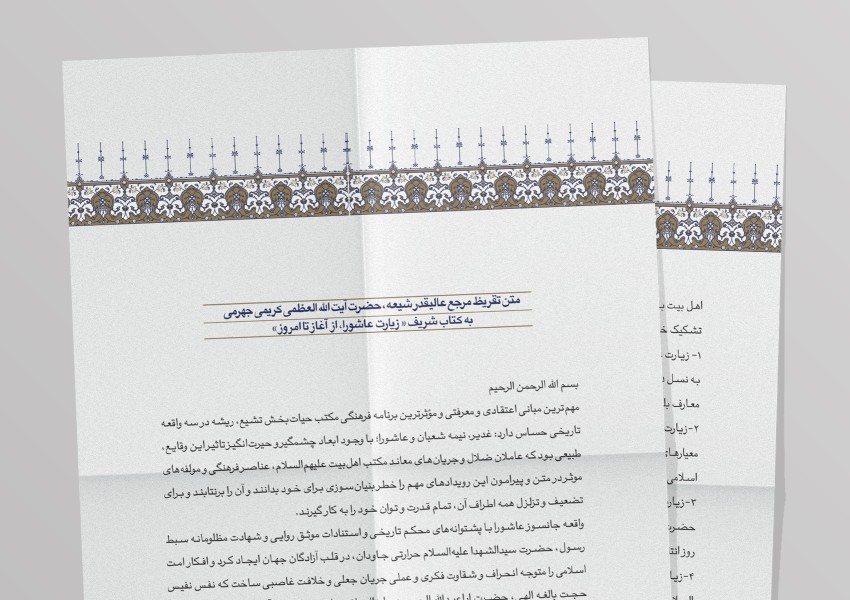 متن تقریظ مرجع عالیقدر شیعه، حضرت آیت الله العظمی کریمی جهرمی
به کتاب شریف « زیارت عاشورا، از آغاز تا امروز»
بسم الله الرحمن الرحیم
مهم‌ترین مبانی اعتقادی و معرفتی و مؤثرترین برنامه فرهنگی مکتب حیات‌بخش تشیع، ریشه در سه واقعه
تاریخی حساس دارد: غدیر، نیمه شعبان و عاشورا؛ با وجود ابعاد چشمگیر و حیرت‌انگیز تاثیر این وقایع،
طبیعی بود که عاملان ضلال و جریان‌های معاند مکتب اهل‌بیت علیهم‌السلام، عناصر فرهنگی و مولفه‌های
موثر در متن و پیرامون این رویدادهای مهم را خطر بنیان‌سوزی برای خود بدانند و آن را برنتابند و برای
تضعیف و تزلزل همه اطراف آن، تمام قدرت و توان خود را به کار گیرند.
واقعه جانسوز عاشورا با پشتوانه‌های محکم تاریخی و استنادات موثق روایی و شهادت مظلومانه سبط
رسول، حضرت سیدالشهدا علیه‌السلام حرارتی جاودان، در قلب آزادگان جهان ایجاد کرد و افکار امت
اسلامی را متوجه انحراف و شقاوت فکری و عملی جریان جعلی و خلافت غاصبی ساخت که نفس نفیس
حجت بالغه الهی، حضرت
اهل بیت
تشکیک
۱- زیارت
به نسل
معارف
۲-زیارت
معیارهای
اسلامی
۳-زیارت
حضرت
روز
۴-